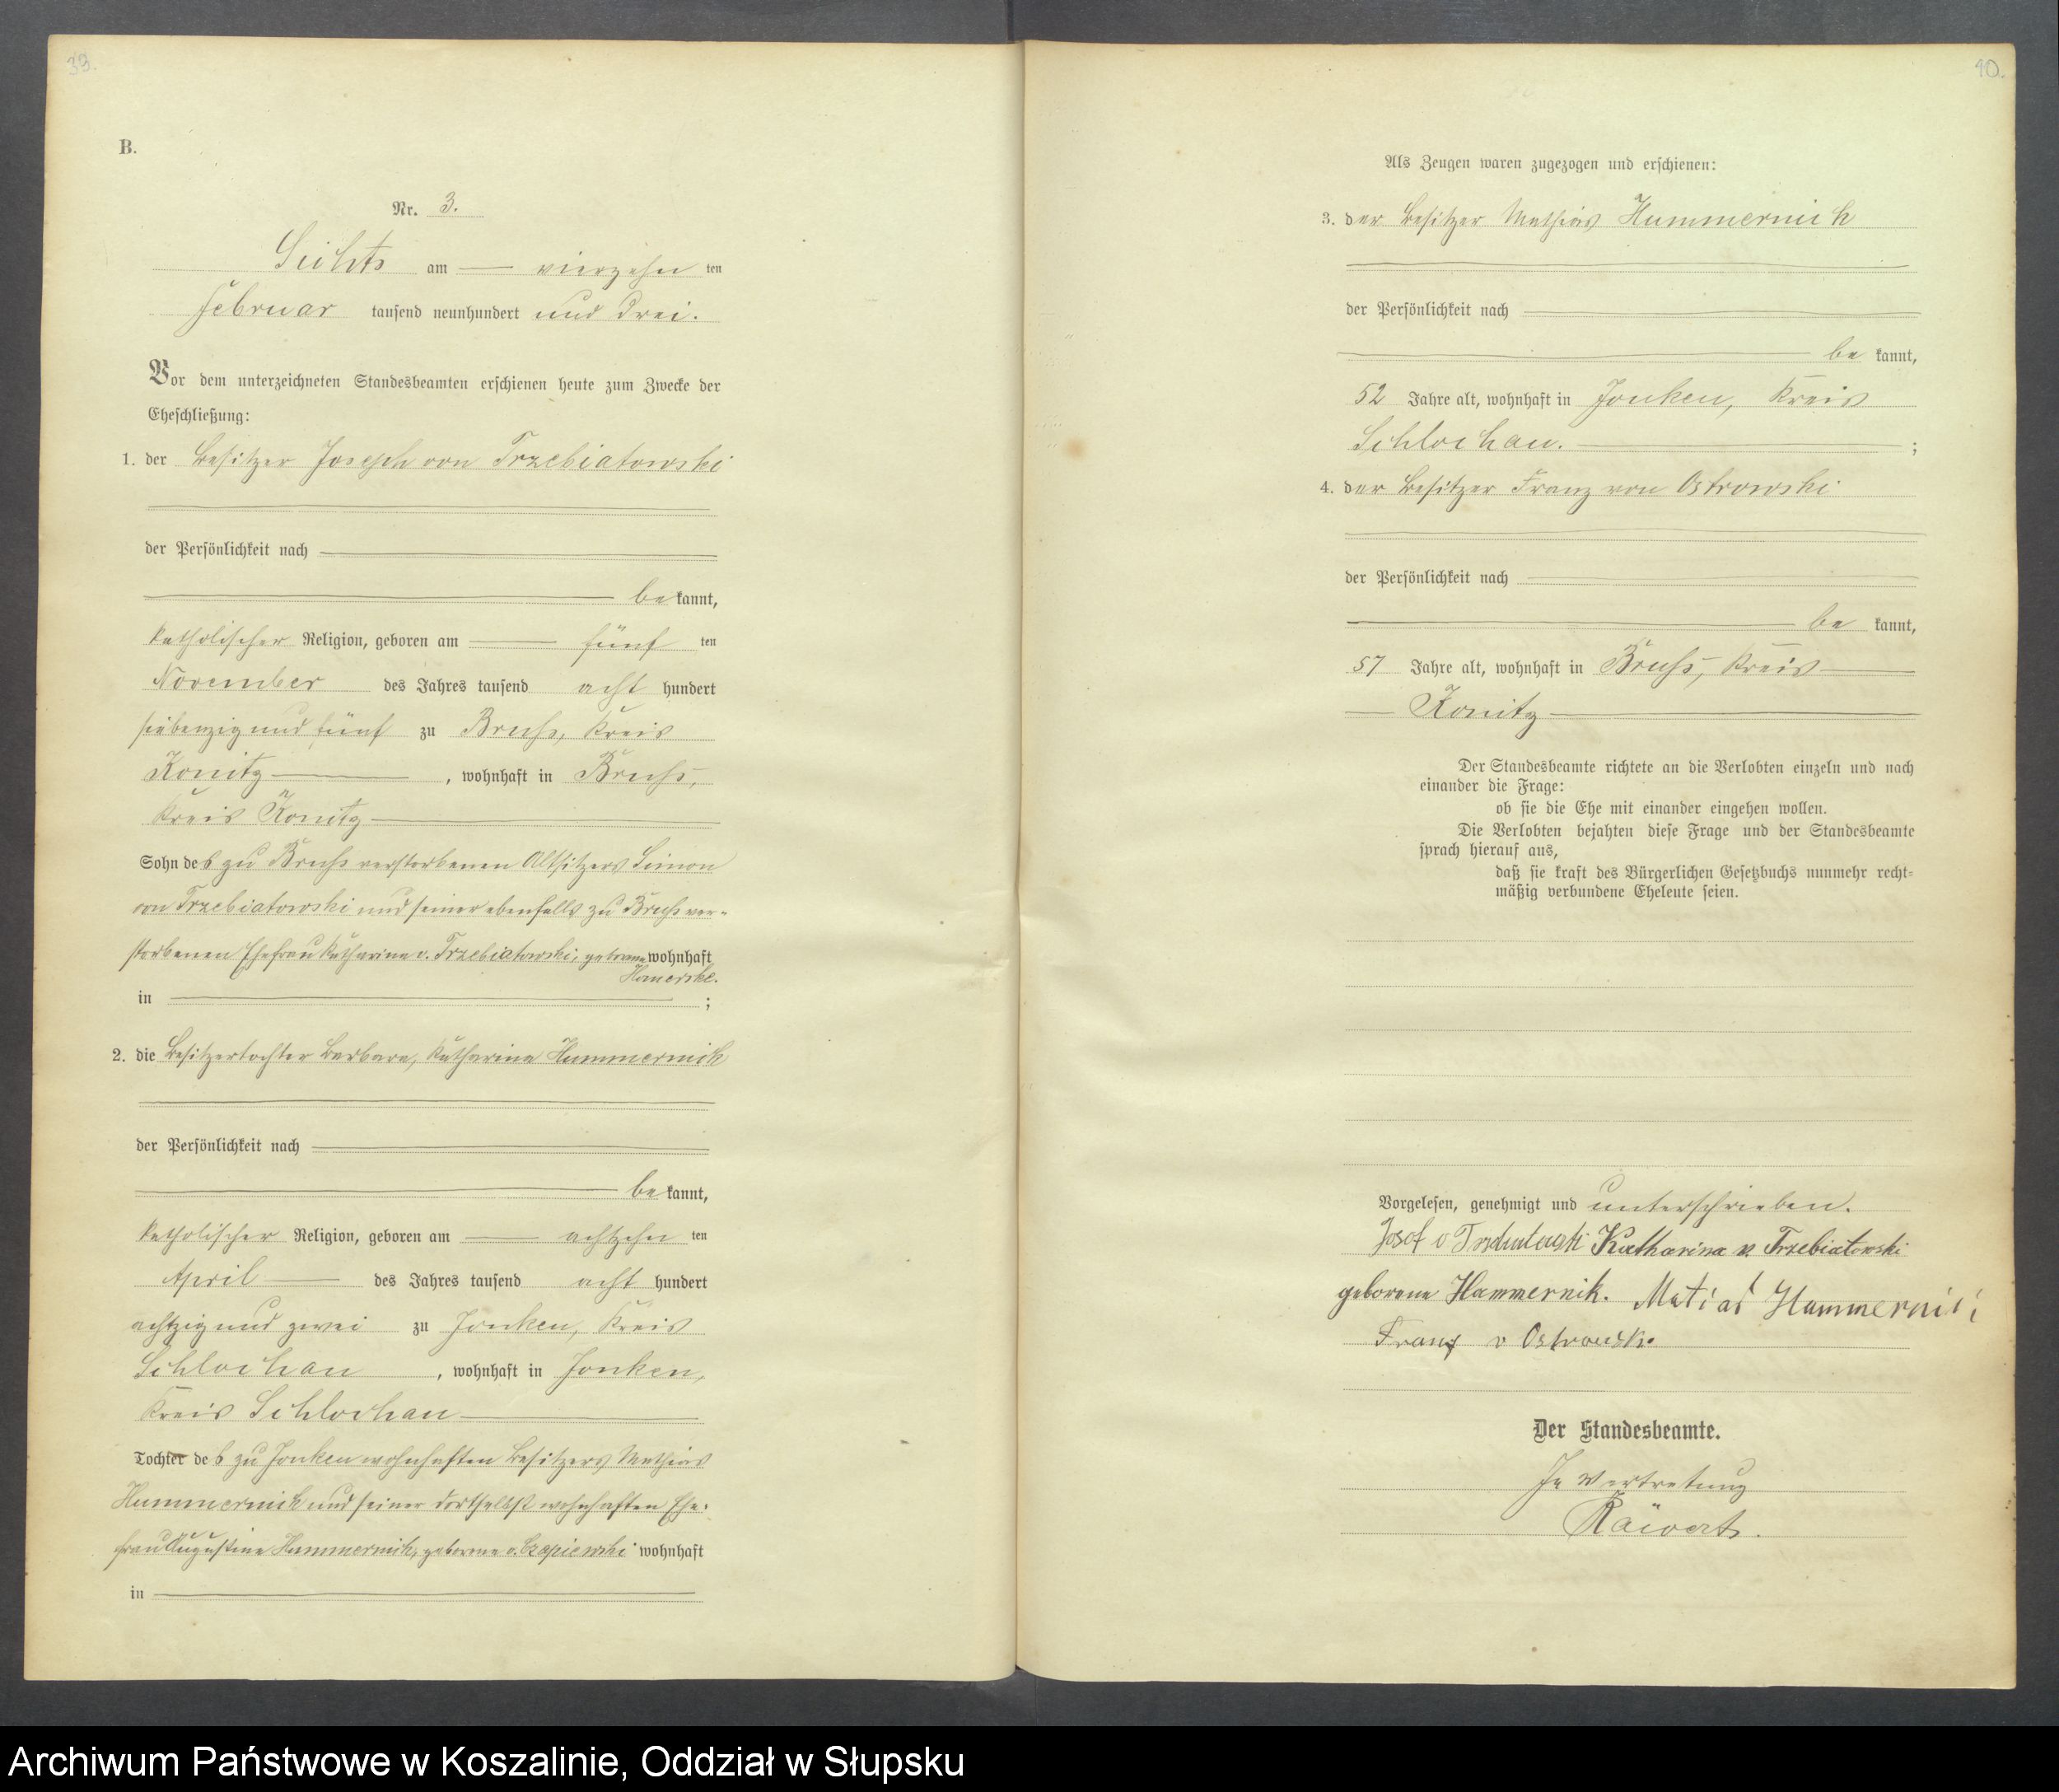 33.
B.
Nr. 3.
am — vierzehn ten
Februar tausend neunhundert und drei.
Vor dem unterzeichneten Standesbeamten erschienen heute zum Zwecke der
Eheschließung:
1. der Besitzer Joseph von Trzebiatowski
der Persönlichkeit nach
be kannt,
katholischer Religion, geboren am — fünf ten
November des Jahres tausend acht hundert
siebenzig und fünf zu Bruss, Kreis
Konitz — , wohnhaft in Bruss,
Kreis Konitz —
Sohn des zu Bruss verstorbenen Altsitzers Simon
von Trzebiatowski und seiner ebenfalls zu Bruss ver-
storbenen Ehefrau Katharina v. Trzebiatowski, geborene wohnhaft
in ;
2. die Besitzertochter Barbara, Katharina Hammernik
der Persönlichkeit nach
be kannt,
katholischer Religion, geboren am — achtzehn ten
April — des Jahres tausend acht hundert
achtzig und zwei zu Jonken, Kreis
Schlochau , wohnhaft in Jonken,
Kreis Schlochau —
Tochter des zu Jonken wohnhaften Besitzers Mathias
Hammernik und seiner dortselbst wohnhaften Ehe-
frau Augustine Hammernik, geborene v. Czapiewski wohnhaft
in
40.
Als Zeugen waren zugezogen und erschienen:
3. der Besitzer Mathias Hammernik
der Persönlichkeit nach
be kannt,
52 Jahre alt, wohnhaft in Jonken, Kreis
Schlochau. — ;
4. der Besitzer Franz von Ostrowski
der Persönlichkeit nach
be kannt,
57 Jahre alt, wohnhaft in Bruss, Kreis —
— Konitz —
Der Standesbeamte richtete an die Verlobten einzeln und nach
einander die Frage:
ob sie die Ehe mit einander eingehen wollen.
Die Verlobten bejahten diese Frage und der Standesbeamte
sprach hierauf aus,
daß sie kraft des Bürgerlichen Gesetzbuchs nunmehr recht-
mäßig verbundene Eheleute seien.
Vorgelesen, genehmigt und unterschrieben.
Josef v Katharina v Trzebiatowski
geborene Hammernik. Matias
Franz v Ostrowski
Der Standesbeamte.
In Vertretung
Archiwum Państwowe w Koszalinie, Oddział w Słupsku